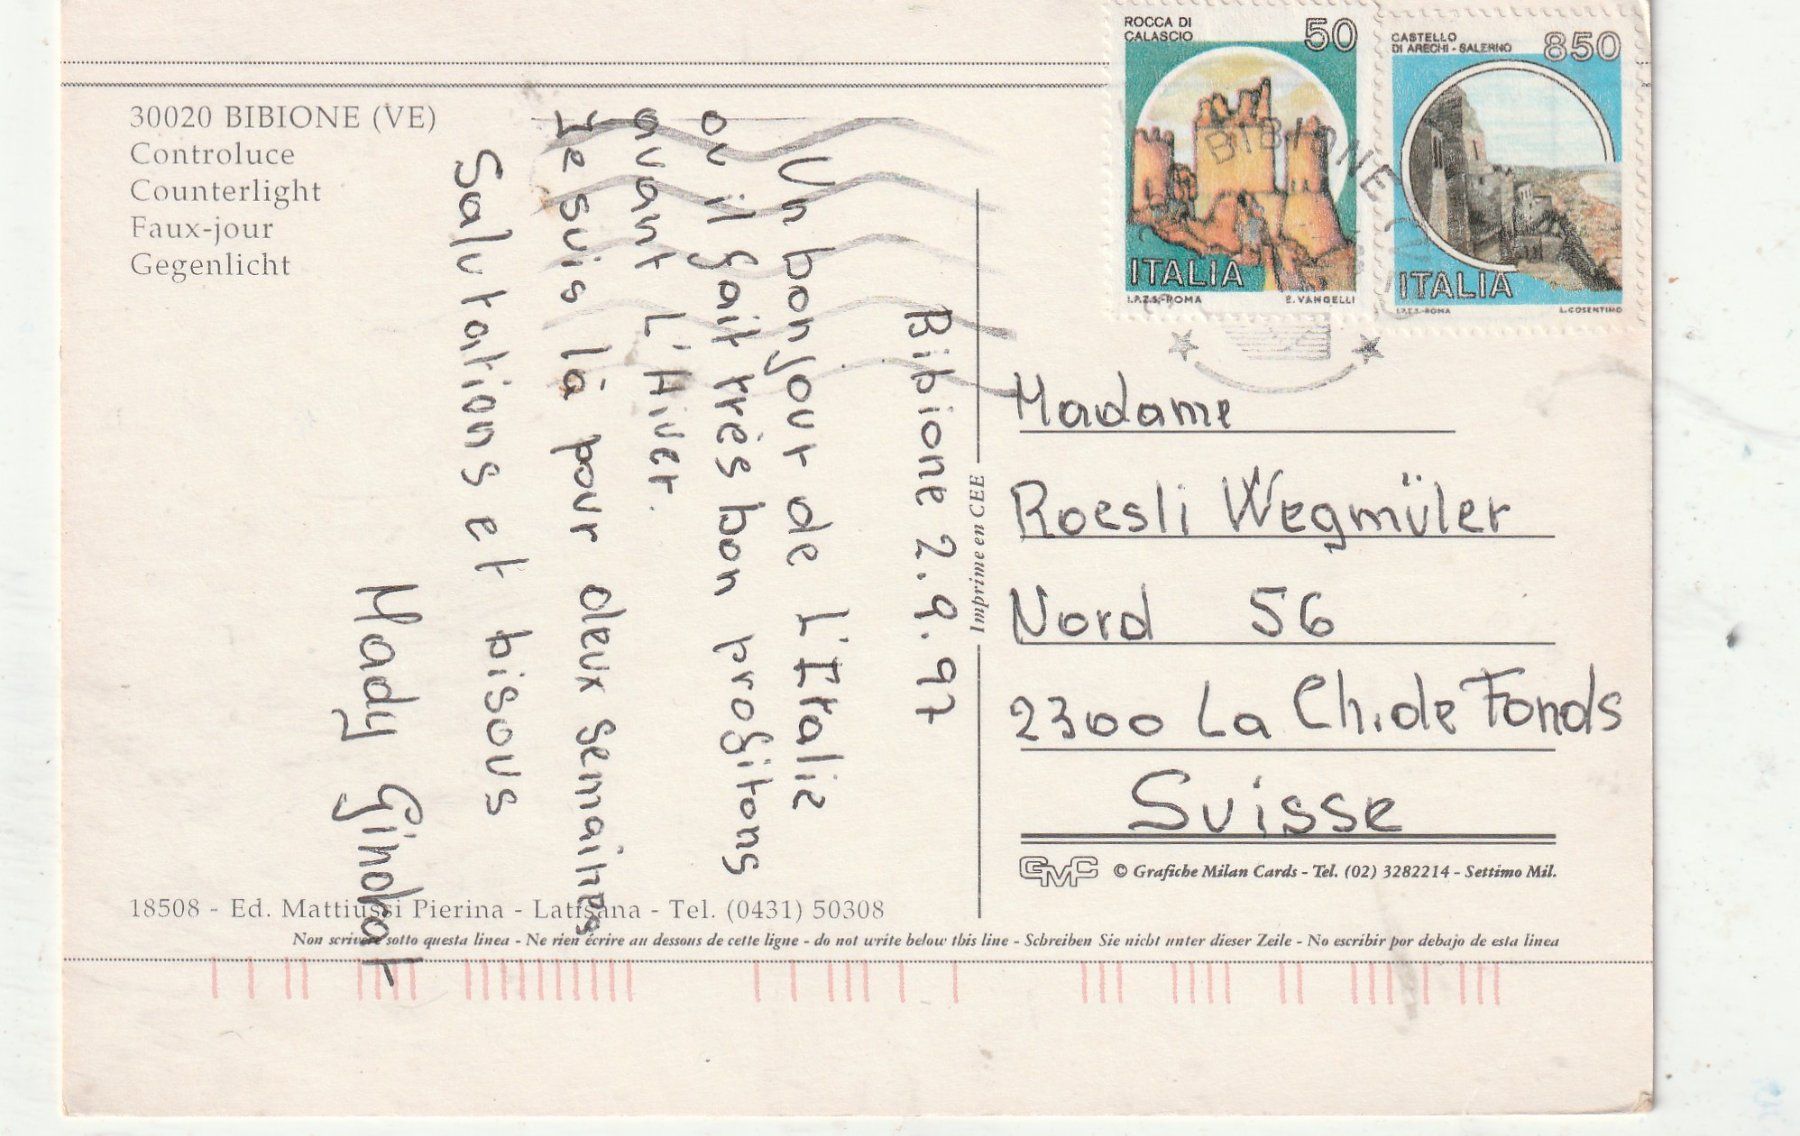 30020 BIBIONE (VE)
Controluce
Counterlight
Faux-jour
Gegenlicht
ROCCA DI
CALASCIO
50
ITALIA
I.P.Z.S.-ROMA E. VANGELLI
CASTELLO
DI ARECHI - SALERNO
850
ITALIA
I.P.Z.S.-ROMA L. COSENTINO
BIBIONE
Bibione 2.9.97
Un bonjour de L'Italie
ou il fait très bon profitons
avant L'Hiver.
Je suis là pour deux semaines
Salutations et bisous
Mady Gindrat
Imprime en CEE
Madame
Roesli Wegmüler
Nord 56
2300 La Ch. de Fonds
Suisse
GMC © Grafiche Milan Cards - Tel. (02) 3282214 - Settimo Mil.
18508 - Ed. Mattiussi Pierina - Latisana - Tel. (0431) 50308
Non scrivere sotto questa linea - Ne rien écrire au dessous de cette ligne - do not write below this line - Schreiben Sie nicht unter dieser Zeile - No escribir por debajo de esta linea